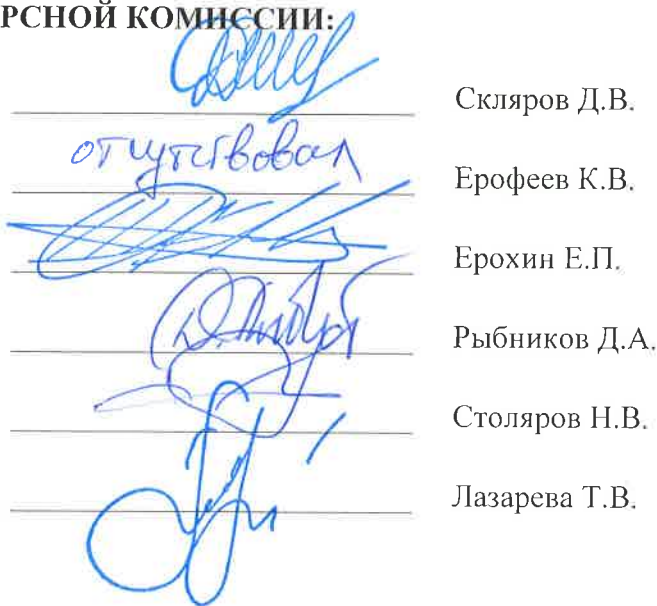 РСНОЙ КОМИССИИ:
Скляров Д.В.
отсутствовал Ерофеев К.В.
Ерохин Е.П.
Рыбников Д.А.
Столяров Н.В.
Лазарева Т.В.